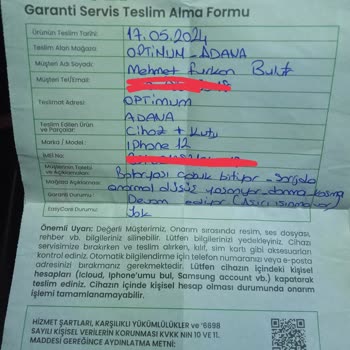 Garanti Servis Teslim Alma Formu
Ürünün Teslim Tarihi: 17.05.2024
Teslim Alan Mağaza: OPTİMUM - ADANA
Müşteri Adı Soyadı: Mehmet furkan
Müşteri Tel/Email:
Teslimat Adresi: OPTİMUM
ADANA
Teslim Edilen Ürün ve Parçalar: Cihaz + Kutu
Marka / Model: iphone 12
IMEI No:
Müşterinin Talebi ve Açıklamaları: Bataryası çabuk bitiyor - Şarjda
Mağaza Açıklaması: anormal düşüş yaşanıyor - donma kasma
Garanti Durumu: Devam ediyor (Aşırı ısınma var)
EasyCare Durumu: Yok
Önemli Uyarı: Değerli Müşterimiz, Onarım sırasında resim, ses dosyası,
rehber vb. bilgileriniz silinebilir. Lütfen bilgilerinizi yedekleyiniz. Cihazı
servisimize bırakırken ve teslim alırken, kılıf, sim kartı gibi aksesuarları
kontrol ediniz. Otomatik bilgilendirme için telefon numaranızı ve e-posta
adresinizi bırakmanız gerekmektedir. Lütfen cihazın içindeki kişisel
hesapları (Icloud, Iphone'umu bul, Samsung account vb.) kapatarak
teslim ediniz. Cihazın içinde kişisel hesap olması durumunda onarım
işlemi tamamlanamayabilir.
HİZMET ŞARTLARI, KARŞILIKLI YÜKÜMLÜLÜKLER ve "6698
SAYILI KİŞİSEL VERİLERİN KORUNMASI KVKK NIN 10 VE 11.
MADDESİ GEREĞİNCE AYDINLATMA METNİ: